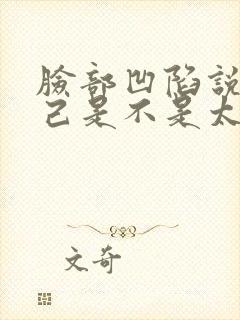 臉部凹陷說
己是不是太
文奇